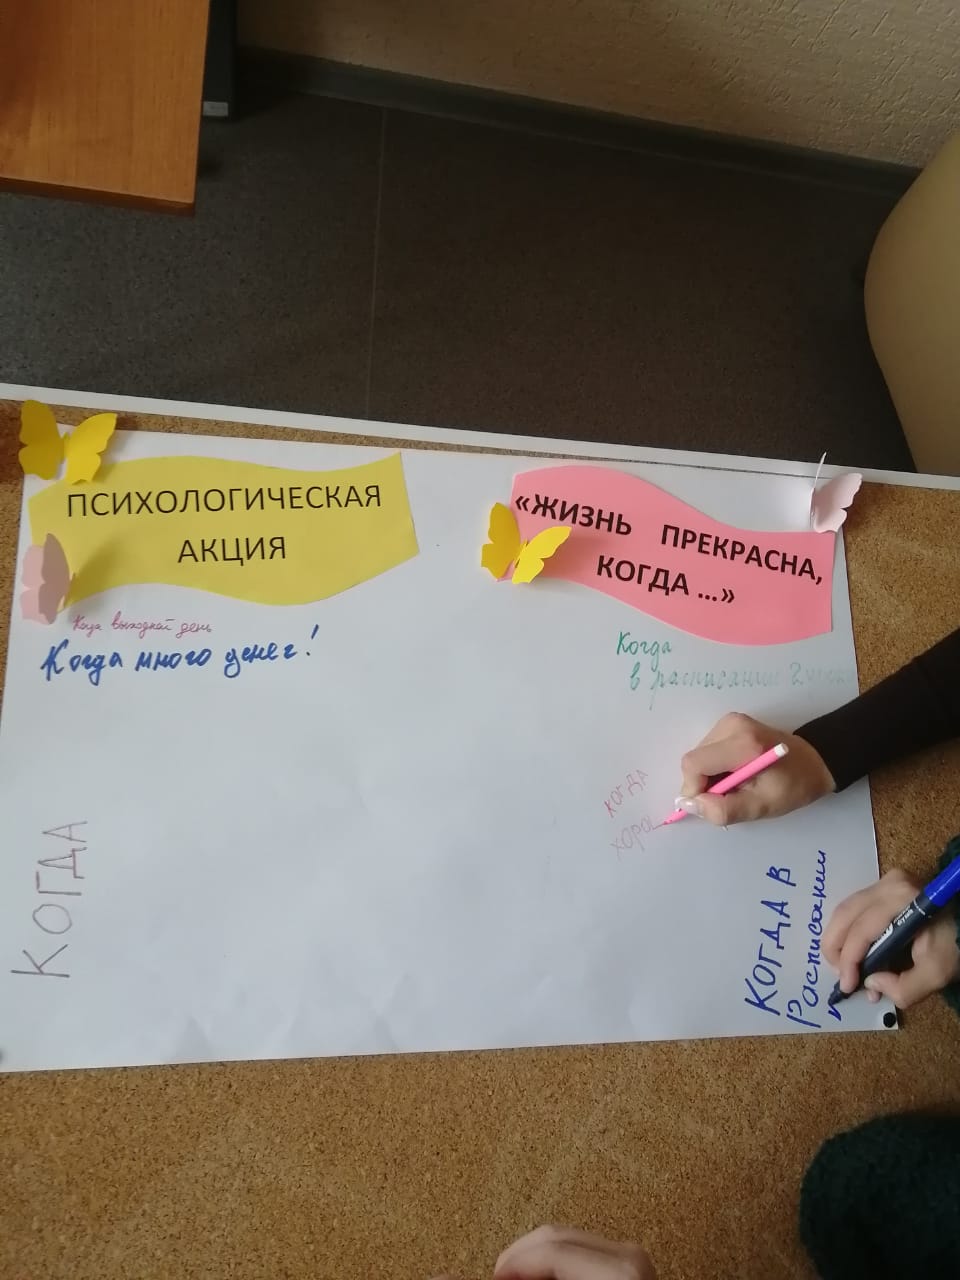 ПСИХОЛОГИЧЕСКАЯ
АКЦИЯ
«ЖИЗНЬ ПРЕКРАСНА,
КОГДА ...»
Когда выходной день
Когда много денег!
Когда
в расписание 2
КОГДА
ХОРО
КОГДА
КОГДА В
Расписании